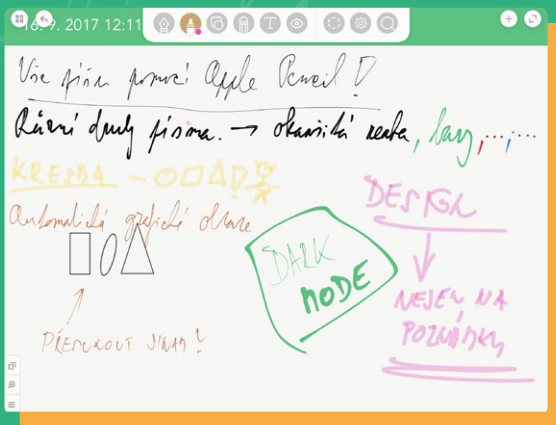 16. 9. 2017 12:11
Vše píšu pomocí Apple Pencil!
Různé druhy písma. → okamžitá změna, barvy, ..., ...
KRESBA –
Automatické grafické obrazce
PŘESUNOUT JINAM?
DARK
MODE
DESIGN
NEJEN NA
POZNÁMKY